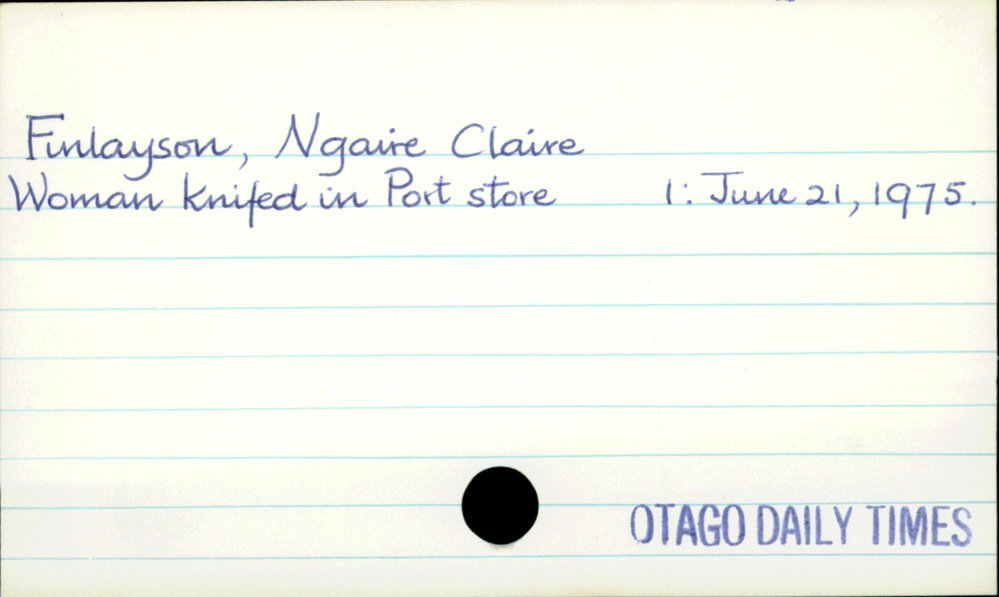 Finlayson, Ngaire Claire
Woman knifed in Port store 1: June 21, 1975.
OTAGO DAILY TIMES